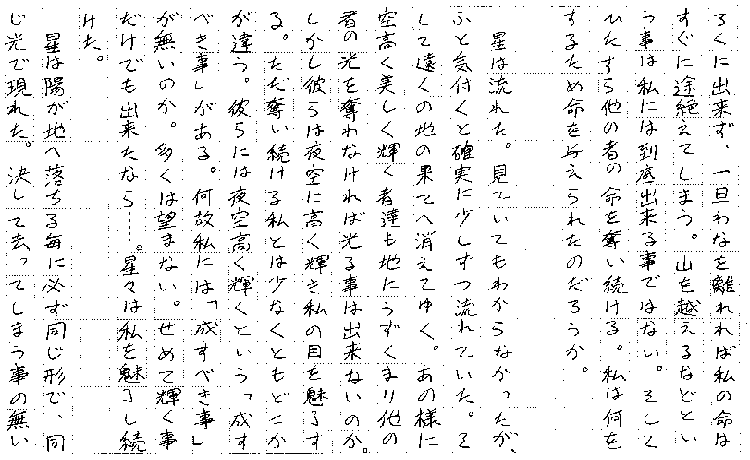 ろくに出来ず、一旦わなを離れれば私の命は
すぐに途絶えてしまう。山を越えるなどとい
う事は私には到底出来る事ではない。そして
ひたすら他の者の命を奪い続ける。私は何を
するため命を与えられたのだろうか。
星は流れた。見ていてもわからなかったが、
ふと気付くと確実に少しずつ流れていた。そ
して遠くの地の果てへ消えてゆく。あの様に
空高く美しく輝く者達も地にうずくまり他の
者の光を奪わなければ光る事は出来ないのか。
しかし彼らは夜空に高く輝き私の目を魅了す
る。ただ奪い続ける私とは少なくともどこか
が違う。彼らには夜空高く輝くという「成す
べき事」がある。何故私には「成すべき事」
が無いのか。多くは望まない。せめて輝く事
だけでも出来たなら……。星々は私を魅了し続
けた。
星は陽が地へ落ちる毎に必ず同じ形で、同
じ光で現れた。決して去ってしまう事の無い